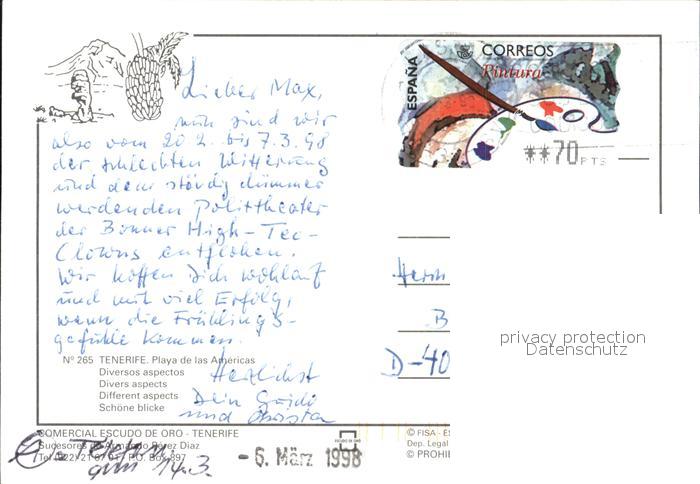 Lieber Max,
nun sind wir
also vom 20.2. bis 7.3.98
der schlechten Witterung
und dem ständig dümmer
werdenden Polittheater
der Bonner High-Tec-
Clowns entflohen.
Wir hoffen Dich wohlauf
und mit viel Erfolg,
wenn die Frühlings-
gefühle kommen.
Herzlichst
Dein Guido
und Christa
Nº 265 TENERIFE. Playa de las Américas
Diversos aspectos
Divers aspects
Different aspects
Schöne blicke
COMERCIAL ESCUDO DE ORO - TENERIFE
Sucesores de Armando Pérez Diaz
P.O. Box 897
14.3.
- 6. März 1998
ESPAÑA
CORREOS
Pintura
**70 PTS
Herrn
B
D-40
privacy protection
Datenschutz
ESCUDO DE ORO
© FISA - ES
Dep. Legal
© PROHIB